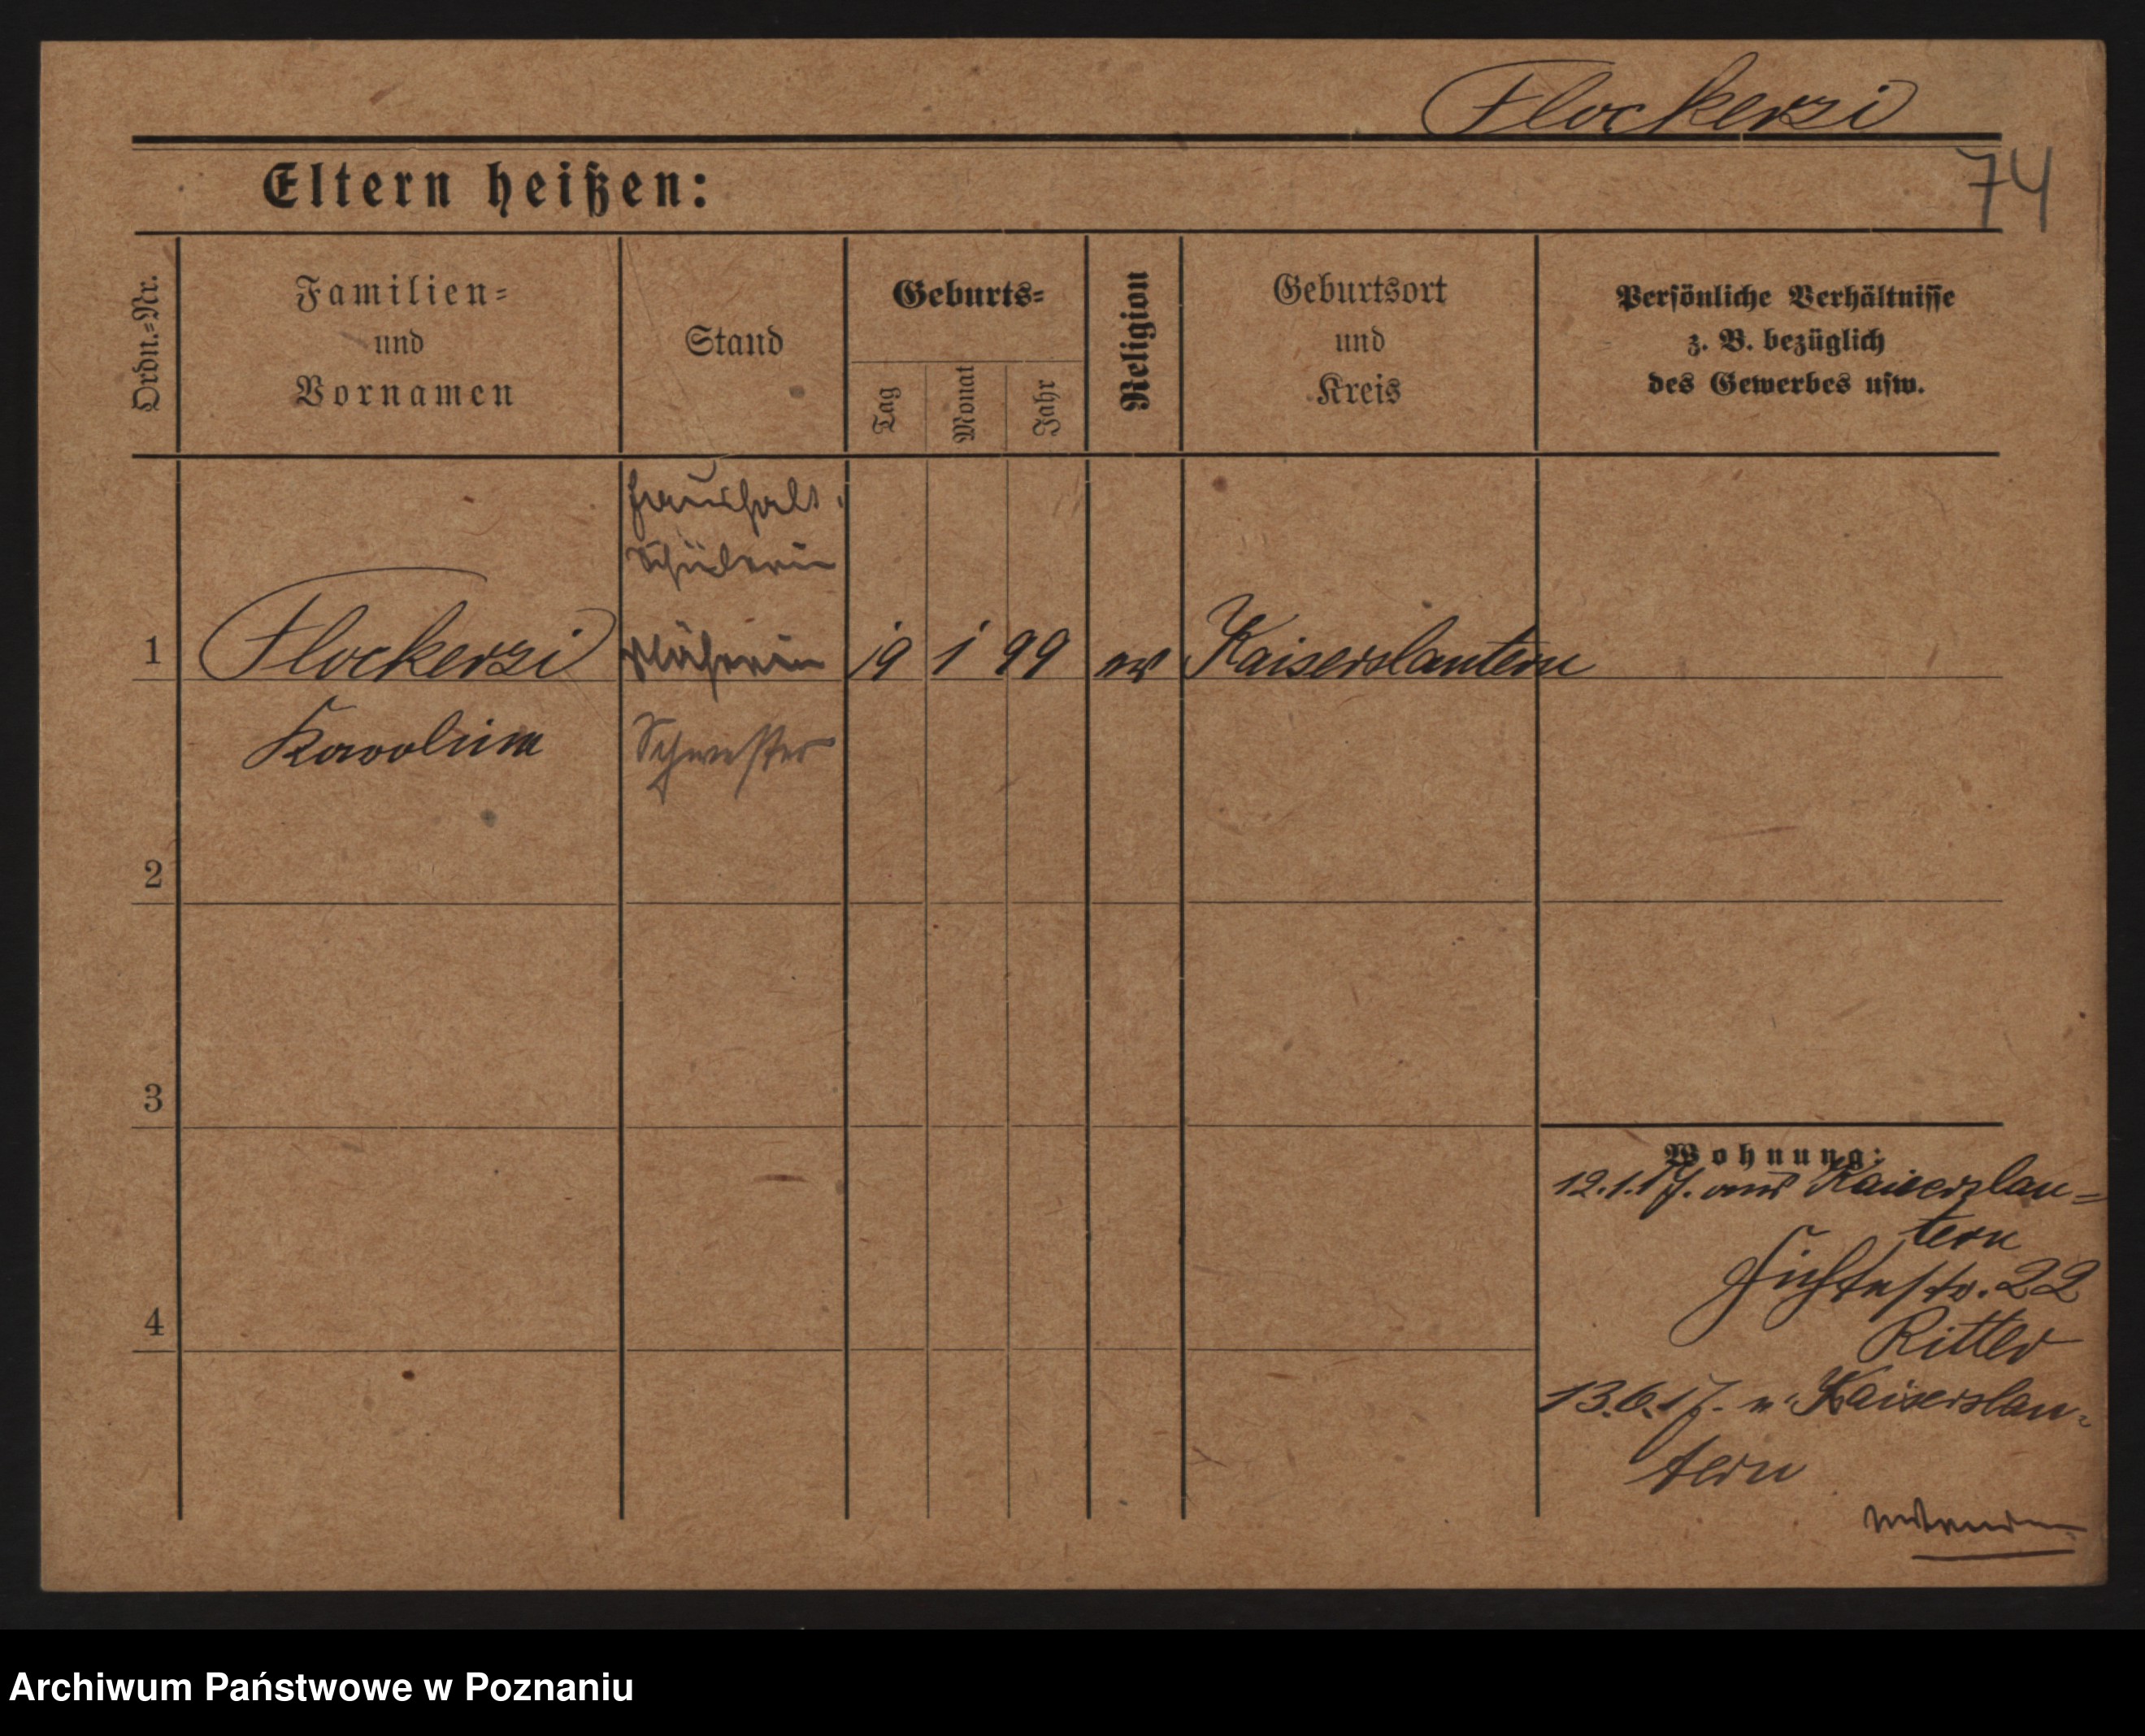 Flockerzi
74
Eltern heißen:
Ordn.-Nr.
Familien-
und
Vornamen
Stand
Geburts-
Tag
Monat
Jahr
Religion
Geburtsort
und
Kreis
Persönliche Verhältnisse
z. B. bezüglich
des Gewerbes usw.
Haushalt.
Schülerin
1 Flockerzi Näherin 19 1 99 ev Kaiserslautern
Karolina Schwester
2
3
4
Wohnung:
12.1.17. aus Kaiserslau-
tern
Fichtestr. 22
Ritter
13.6.17. n. Kaiserslau-
tern
Archiwum Państwowe w Poznaniu